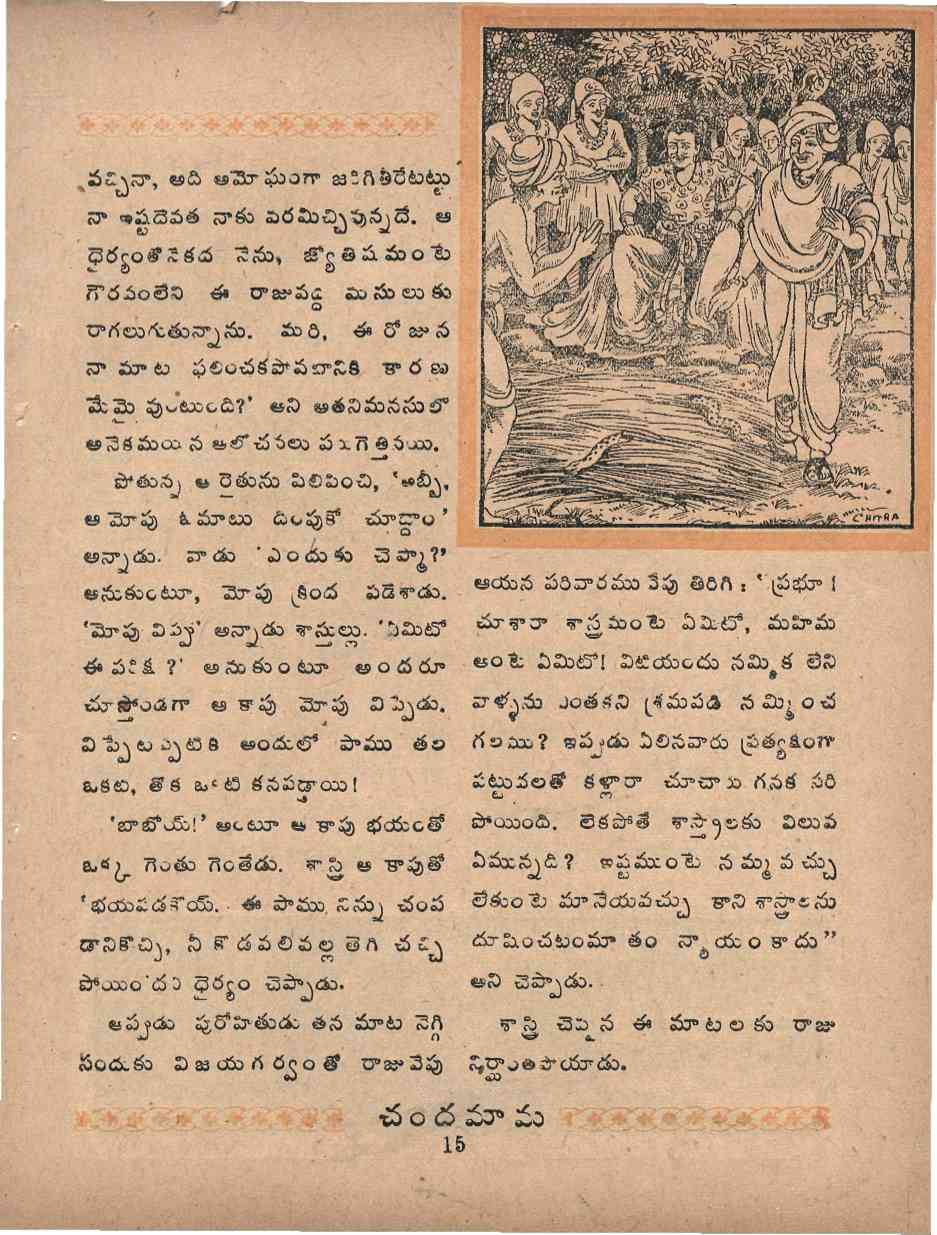 వచ్చినా, అది అమోఘంగా జరిగితీరేటట్టు
నా ఇష్టదేవత నాకు వరమిచ్చివున్నదే. ఆ
ధైర్యంతోనేకద నేను, జ్యోతిషమంటె
గౌరవంలేని ఈ రాజువద్ద మసులుకు
రాగలుగుతున్నాను. మరి, ఈ రోజున
నా మాట ఫలించకపోవటానికి కారణ
మేమై వుంటుంది?' అని అతనిమనసులో
అనేకమయిన ఆలోచనలు పరిగెత్తినయి.
పోతున్న ఆ రైతును పిలిపించి, 'అబ్బీ,
ఆ మోపు ఓమాటు దింపుకో చూద్దాం'
అన్నాడు. వాడు 'ఎందుకు చెప్మా?'
అనుకుంటూ, మోపు క్రింద పడేశాడు.
'మోపు విప్పు' అన్నాడు శాస్తుల్లు. 'ఏమిటో
ఈ పరీక్ష ?' అనుకుంటూ అందరూ
చూస్తోండగా ఆ కాపు మోపు విప్పేడు.
విప్పేటప్పటికి అందులో పాము తల
ఒకటి, తోక ఒకటి కనపడ్డాయి!
'బాబోయ్!' అంటూ ఆ కాపు భయంతో
ఒక్క గెంతు గెంతేడు. శాస్త్రి ఆ కాపుతో
'భయపడకోయ్. ఈ పాము నిన్ను చంప
డానికొచ్చి, నీ కొడవలివల్ల తెగి చచ్చి
పోయిం'దని ధైర్యం చెప్పాడు.
అప్పుడు పురోహితుడు తన మాట నెగ్గి
నందుకు విజయగర్వంతో రాజువేపు
CHITRA
ఆయన పరివారము వేపు తిరిగి : "ప్రభూ !
చూశారా శాస్త్రమంటె ఏమిటో, మహిమ
అంటె ఏమిటో! వీటియందు నమ్మిక లేని
వాళ్ళను ఎంతకని శ్రమపడి నమ్మించ
గలము? ఇప్పుడు ఏలినవారు ప్రత్యక్షంగా
పట్టువలతో కళ్లారా చూచారు గనక సరి
పోయింది. లేకపోతే శాస్త్రాలకు విలువ
ఏమున్నది? ఇష్టముంటె నమ్మవచ్చు
లేకుంటె మానేయవచ్చు కాని శాస్త్రాలను
దూషించటంమాత్రం న్యాయంకాదు"
అని చెప్పాడు.
శాస్త్రి చెప్పిన ఈ మాటలకు రాజు
నిర్ఘాంతపోయాడు.
చందమామ
15